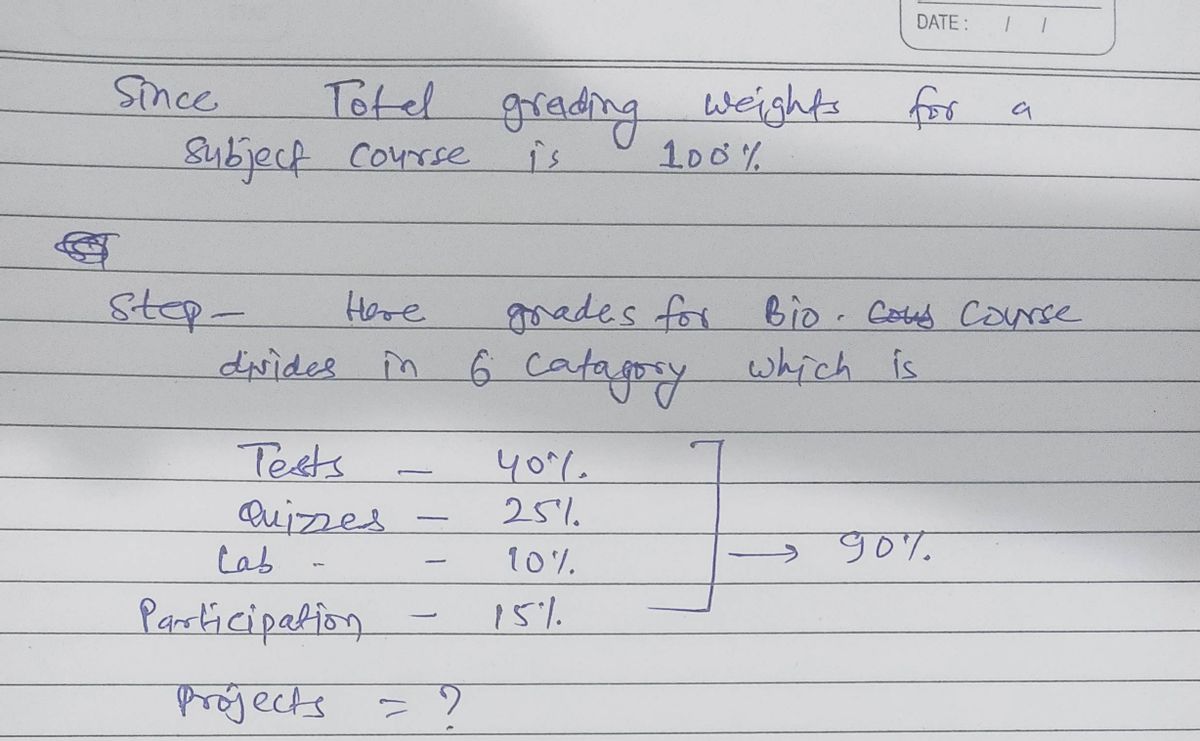 DATE: / /
Since Totel grading weights for a
Subject Course is 100%
Step - Here grades for Bio. Course
divides in 6 Catagory which is
Tests - 40%.
Quizzes - 25%.
Lab - - 10%.
Participation - 15%.
→ 90%.
Projects = ?